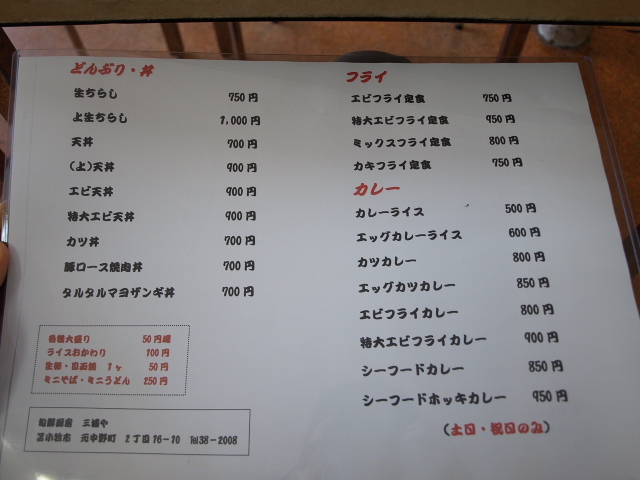 どんぶり・丼
生ちらし 750円
上生ちらし 1,000円
天丼 700円
(上)天丼 900円
エビ天丼 900円
特大エビ天丼 900円
カツ丼 700円
豚ロース焼肉丼 700円
タルタルマヨザンギ丼 700円
各種大盛り 50円増
ライスおかわり 100円
生卵・目玉焼 1ヶ 50円
ミニそば・ミニうどん 250円
旬鮮厨房 三浦や
苫小牧市 元中野町 2丁目16-10 Tel38-2008
フライ
エビフライ定食 750円
特大エビフライ定食 950円
ミックスフライ定食 800円
カキフライ定食 750円
カレー
カレーライス 500円
エッグカレーライス 600円
カツカレー 800円
エッグカツカレー 850円
エビフライカレー 800円
特大エビフライカレー 900円
シーフードカレー 850円
シーフードホッキカレー 950円
(土日・祝日のみ)